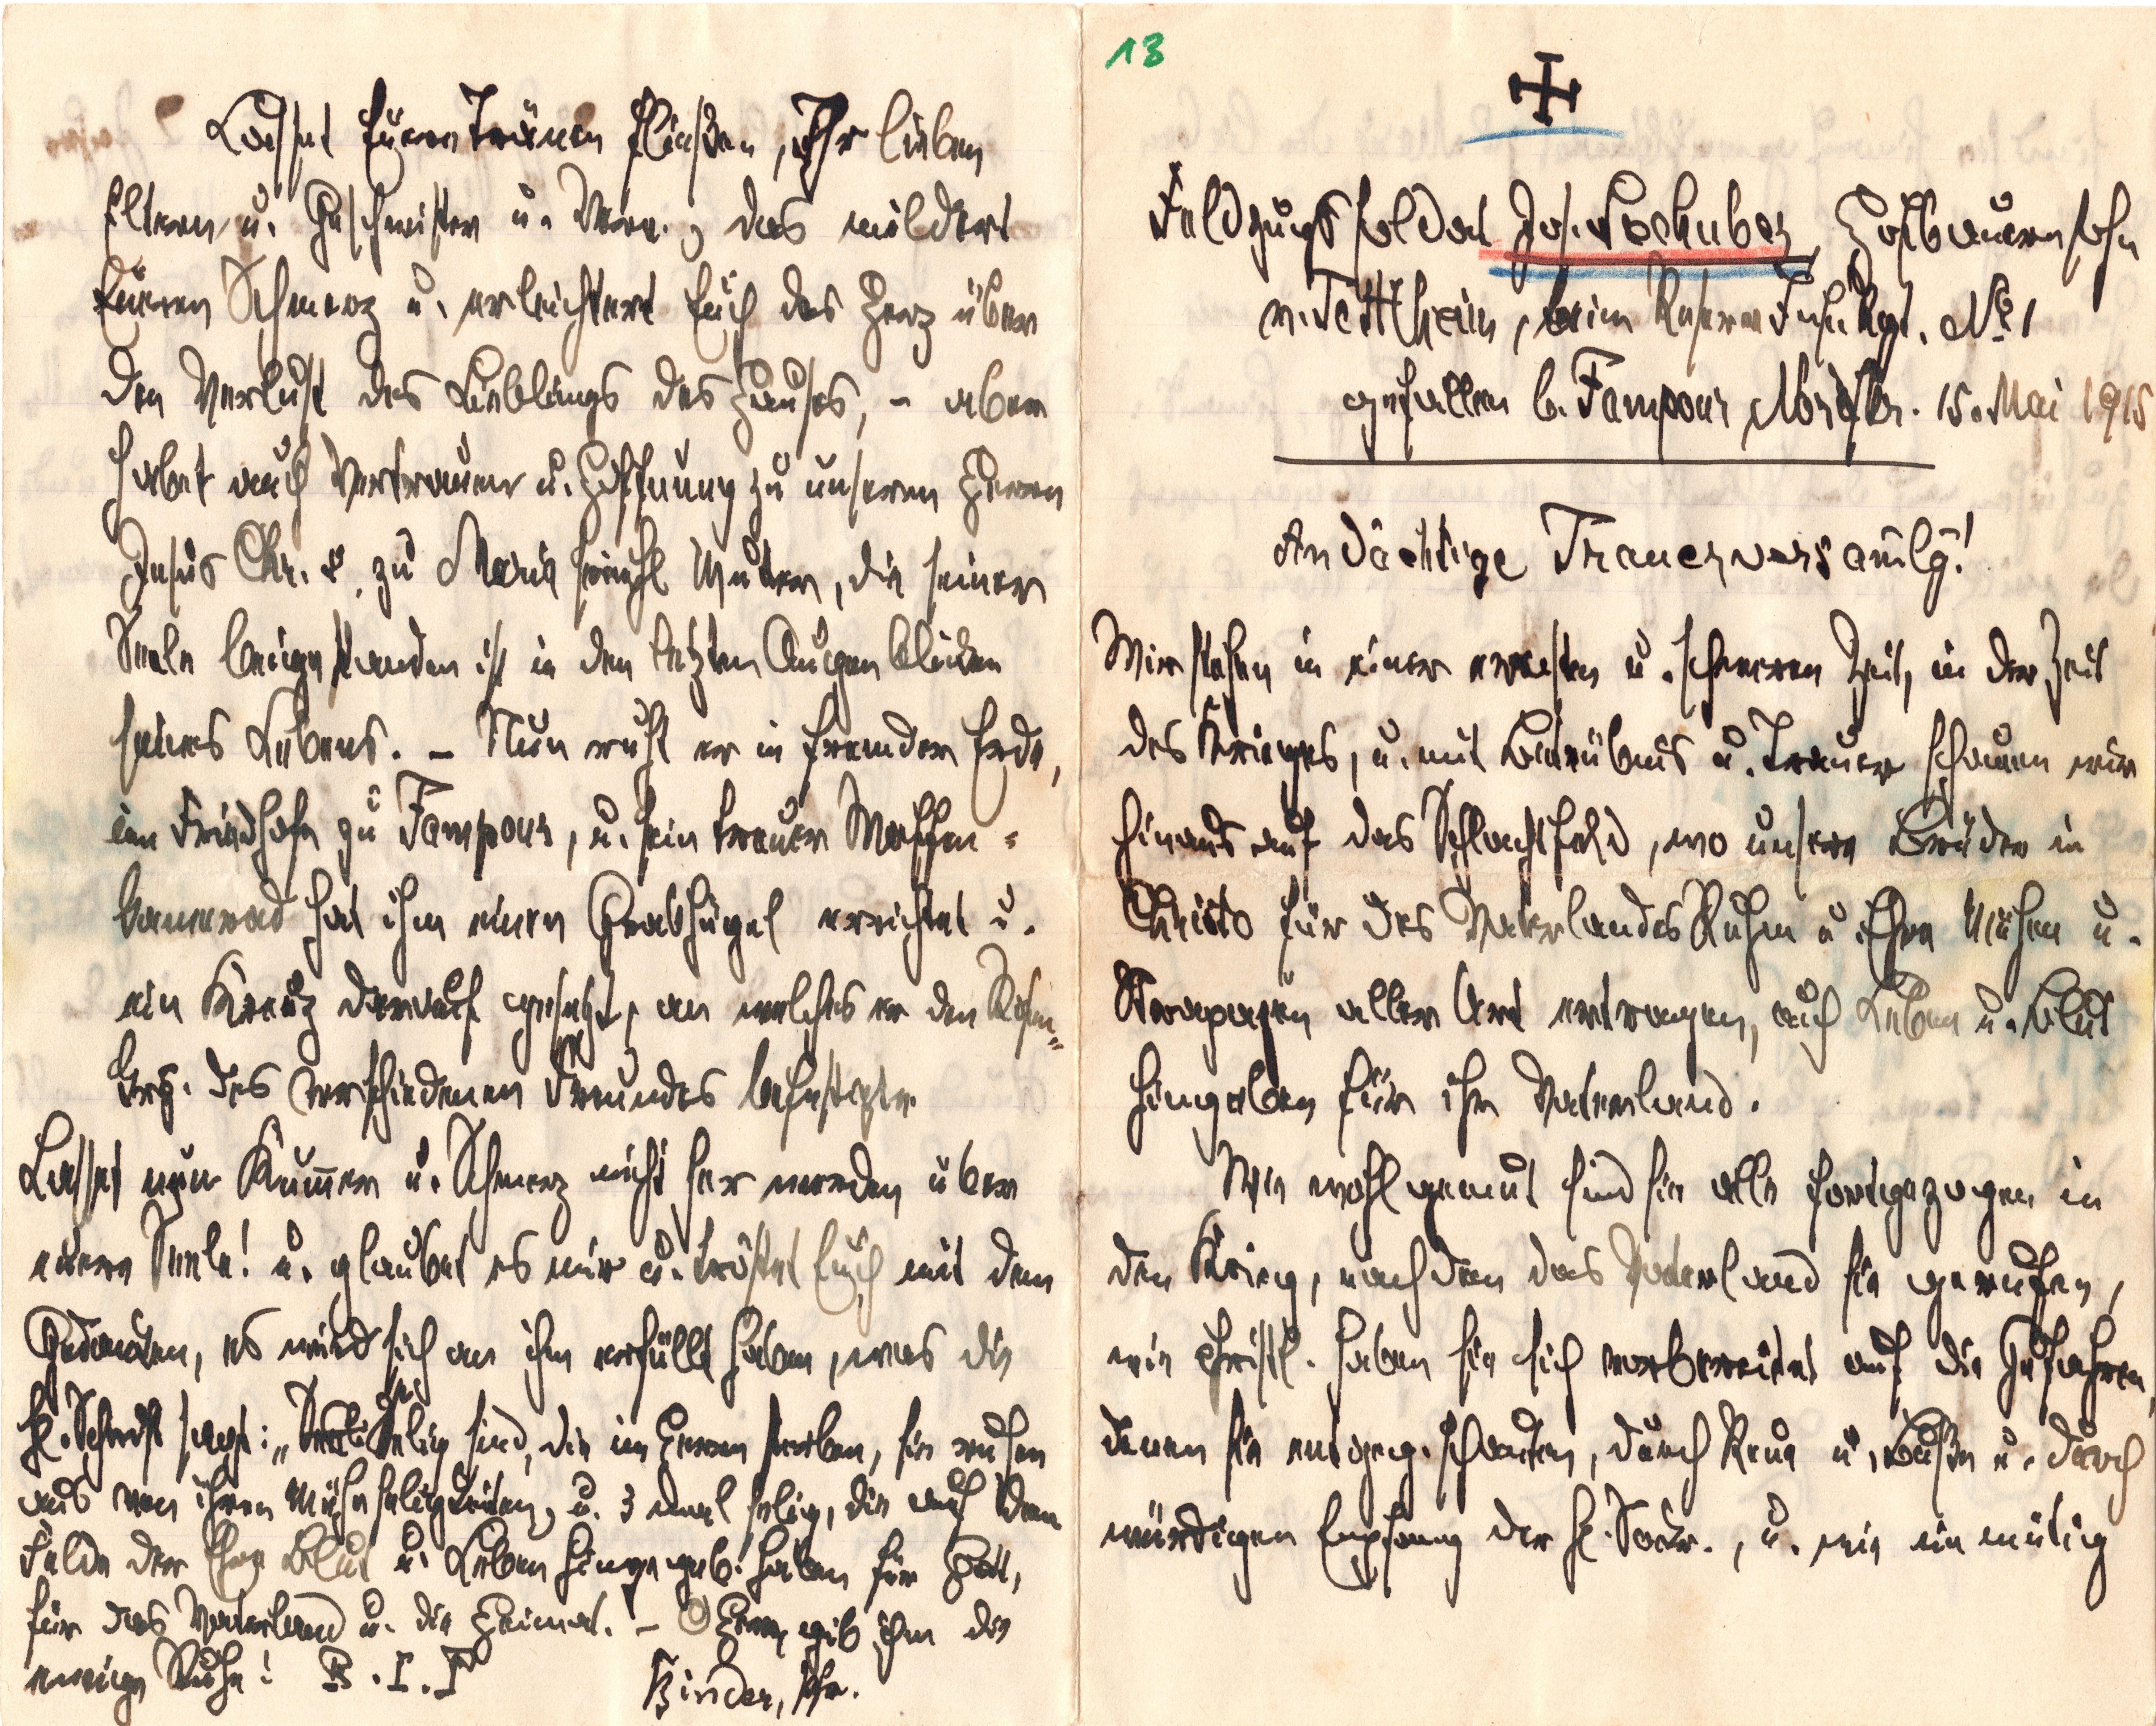 Lasset Euren Tränen fließen, Ihr lieben
Eltern u. Geschwister u. Verw., das mildert
Eueren Schmerz u. erleichtert Euch das Herz über
den Verlust des Lieblings des Hauses, – aber
habet auch Vertrauen u. Hoffnung zu unserem Herrn
Jesus Chr. u. zu Maria Mutter, die seiner
Seele beigestanden ist in den letzten Augenblicken
seines Lebens. – Nun ruht er in fremder Erde,
im Friedhofe zu Fampoux, u. sein treuer Waffen-
kamerad hat ihm einen Grabhügel errichtet u.
ein Kreuz darauf gesetzt, an welches er den
des verschiedenen Freundes befestigte.
Lasset nun Kummer u. Schmerz nicht Herr werden über
euere Seele! u. glaubet es mir u. tröstet Euch mit dem
Gedanken, es wird sich an ihm erfüllt haben, was die
hl. Schrift sagt: „Selig sind, die im Herrn sterben, sie ruhen
aus von ihren Mühseligkeiten, u. 3 mal selig, die auf dem
Felde der Ehre Blut u. Leben hingegeb. haben für Gott,
für das Vaterland u. die Heimat. – O Herr, gib ihm die
ewige Ruhe! R.I.P
Binder, Pfr.
13
Feldzugssoldat Jos. Lechuber, Hofbauernsohn
v. Tettlham, beim Reserve Inf. Rgt. No 1
gefallen b. Fampoux, Nordfkr. 15. Mai 1915
Andächtige Trauerversamlg!
Wir stehen in einer ernsten u. schweren Zeit, in der Zeit
des Krieges, u. mit Betrübnis u. Trauer schauen wir
hinaus auf das Schlachtfeld, wo unsere Brüder in
Christo für des Vaterlandes Ruhm u. Ehre Mühen u.
Strapazen aller Art ertragen, auch Leben u. Blut
hingeben für ihr Vaterland.
Wie wohlgemut sind sie alle fortgezogen in
den Krieg, nachdem das Vaterland sie gerufen,
wie christl. haben sie sich vorbereitet auf die Gefahren,
denen sie entgeg. schauten, durch Reue u. Buße u. durch
würdigen Empfang der hl. Sakr., u. wie ein mutig